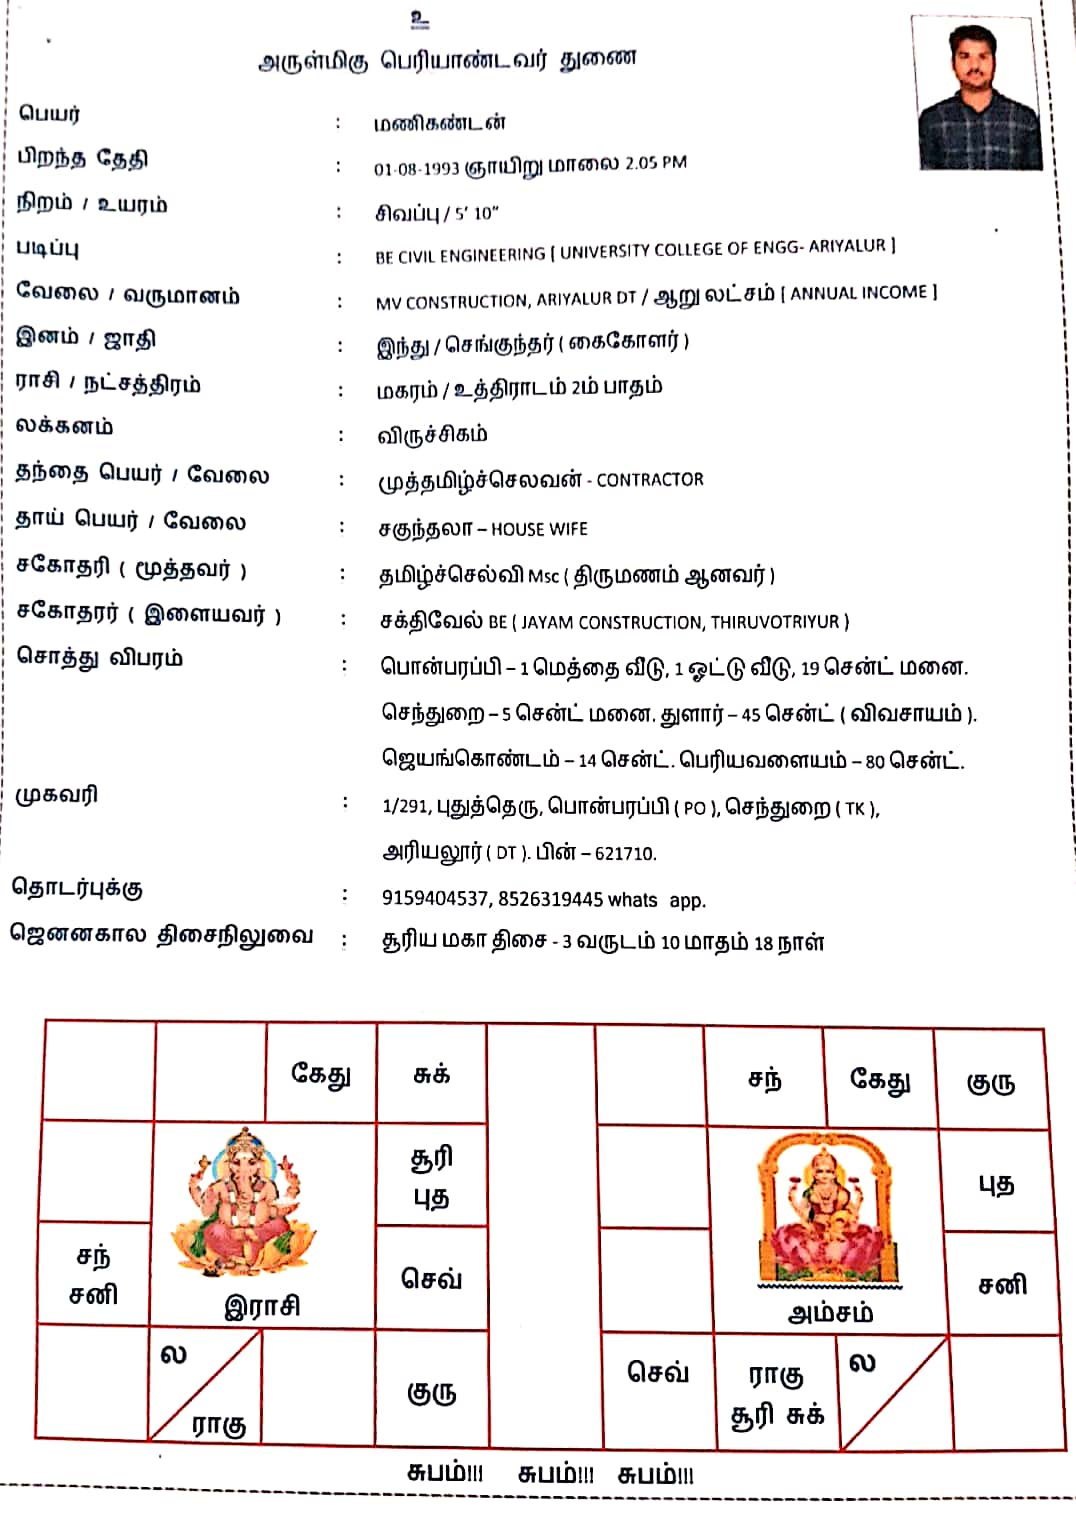 உ
அருள்மிகு பெரியாண்டவர் துணை
பெயர் : மணிகண்டன்
பிறந்த தேதி : 01-08-1993 ஞாயிறு மாலை 2.05 PM
நிறம் / உயரம் : சிவப்பு / 5' 10"
படிப்பு : BE CIVIL ENGINEERING [ UNIVERSITY COLLEGE OF ENGG- ARIYALUR ]
வேலை / வருமானம் : MV CONSTRUCTION, ARIYALUR DT / ஆறு லட்சம் [ ANNUAL INCOME ]
இனம் / ஜாதி : இந்து / செங்குந்தர் ( கைகோளர் )
ராசி / நட்சத்திரம் : மகரம் / உத்திராடம் 2ம் பாதம்
லக்கனம் : விருச்சிகம்
தந்தை பெயர் / வேலை : முத்தமிழ்ச்செலவன் - CONTRACTOR
தாய் பெயர் / வேலை : சகுந்தலா – HOUSE WIFE
சகோதரி ( மூத்தவர் ) : தமிழ்ச்செல்வி Msc ( திருமணம் ஆனவர் )
சகோதரர் ( இளையவர் ) : சக்திவேல் BE ( JAYAM CONSTRUCTION, THIRUVOTRIYUR )
சொத்து விபரம் : பொன்பரப்பி – 1 மெத்தை வீடு, 1 ஓட்டு வீடு, 19 சென்ட் மனை.
செந்துறை – 5 சென்ட் மனை. துளார் – 45 சென்ட் ( விவசாயம் ).
ஜெயங்கொண்டம் – 14 சென்ட். பெரியவளையம் – 80 சென்ட்.
முகவரி : 1/291, புதுத்தெரு, பொன்பரப்பி ( PO ), செந்துறை ( TK ),
அரியலூர் ( DT ). பின் – 621710.
தொடர்புக்கு : 9159404537, 8526319445 whats app.
ஜெனனகால திசைநிலுவை : சூரிய மகா திசை - 3 வருடம் 10 மாதம் 18 நாள்
கேது சுக் சந் கேது குரு
சூரி
புத புத
சந்
சனி செவ் சனி
இராசி அம்சம்
ல செவ் ராகு ல
ராகு குரு சூரி சுக்
சுபம்!!! சுபம்!!! சுபம்!!!